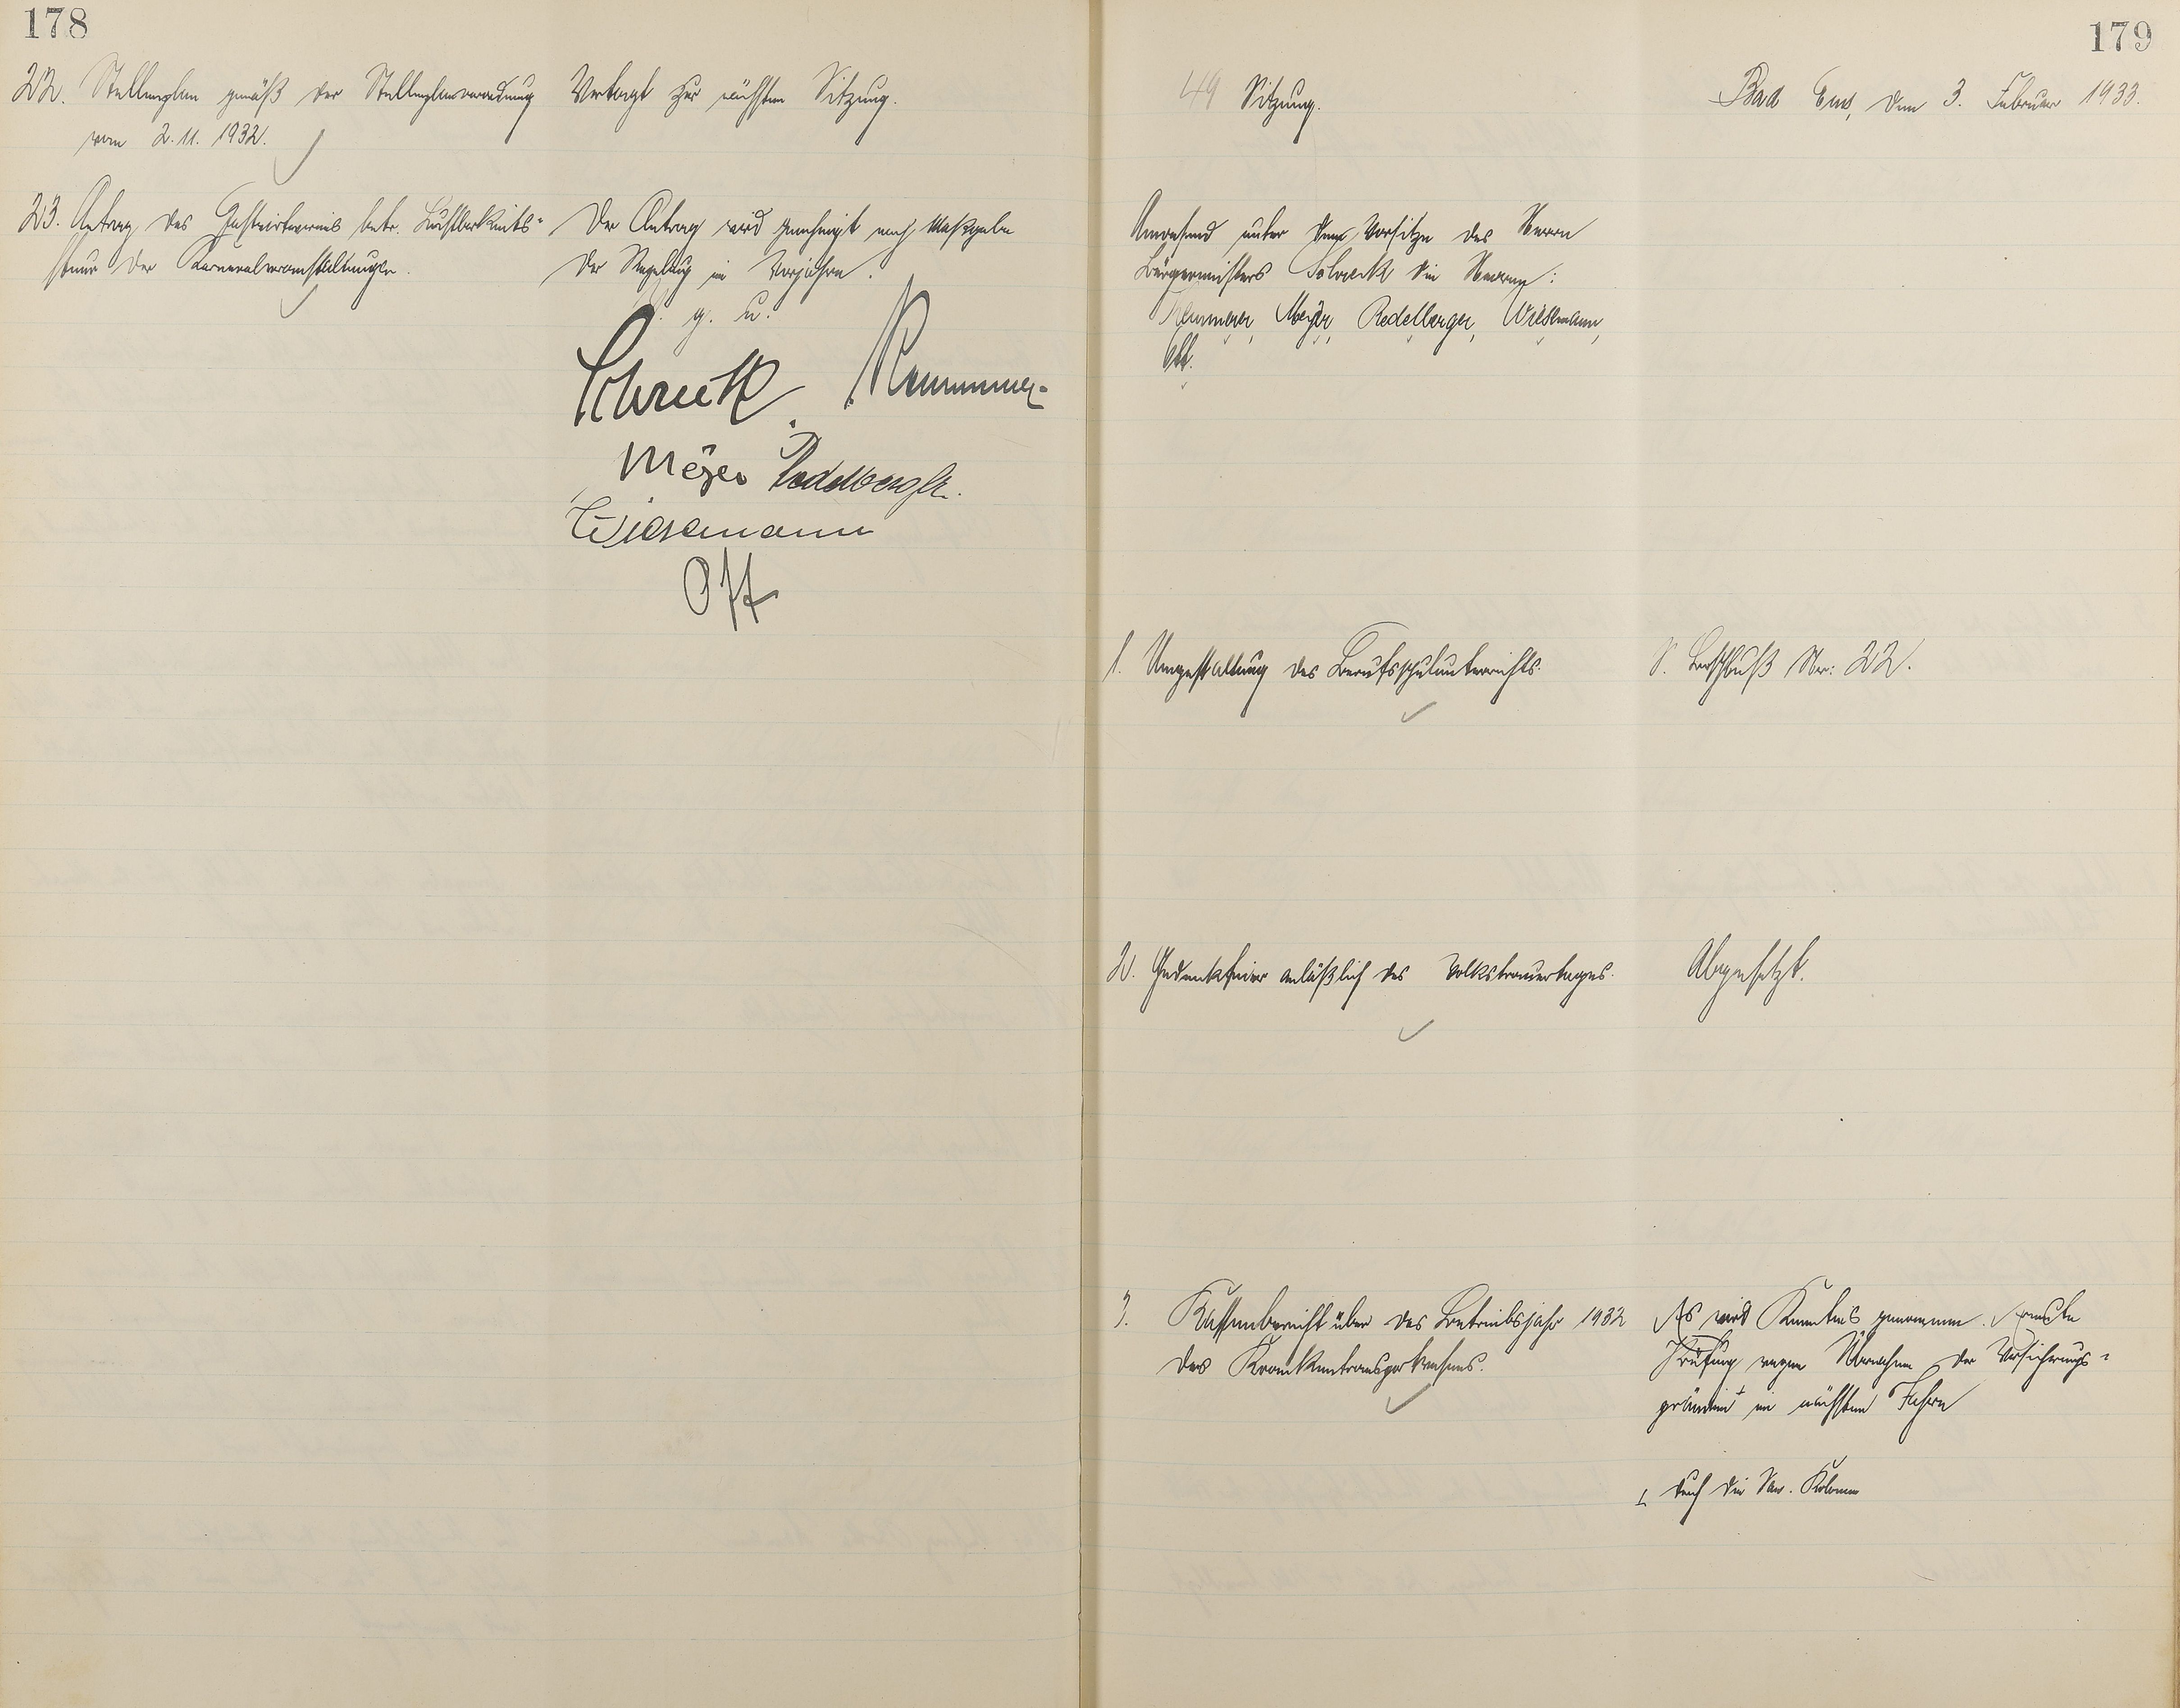 178
22. Stellenplan gemäß der Stellenplanverordnung
vom 2.11.1932.
Vertagt zur nächsten Sitzung.
23. Antrag des Gastwirtevereins betr. Lustbarkeits-
steuer der Karnevalveranstaltungen.
Der Antrag wird genehmigt nach Maßgabe
der Regelung im Vorjahre.
g. u.
Schreck
Meyer Redelberger.
Wiesemann
Ott
179
49 Sitzung.
Bad Ems, den 3. Februar 1933.
Anwesend unter dem Vorsitze des Herrn
Bürgermeisters Schreck die Herren:
Meyer, Redelberger, Wiesemann,
Ott.
1. Umgestaltung des Berufsschulunterrichts.
S. Beschluß Nr: 22.
2. Gedenkfeier anläßlich des Volkstrauertages.
Abgesetzt.
3. Kassenbericht über das Betriebsjahr 1932
des Krankentransportwesens.
Es wird Kenntnis genommen. Erneute
Prüfung wegen Übernahme der Versicherungs-
prämie im nächsten Jahre
durch die San. Kolonne